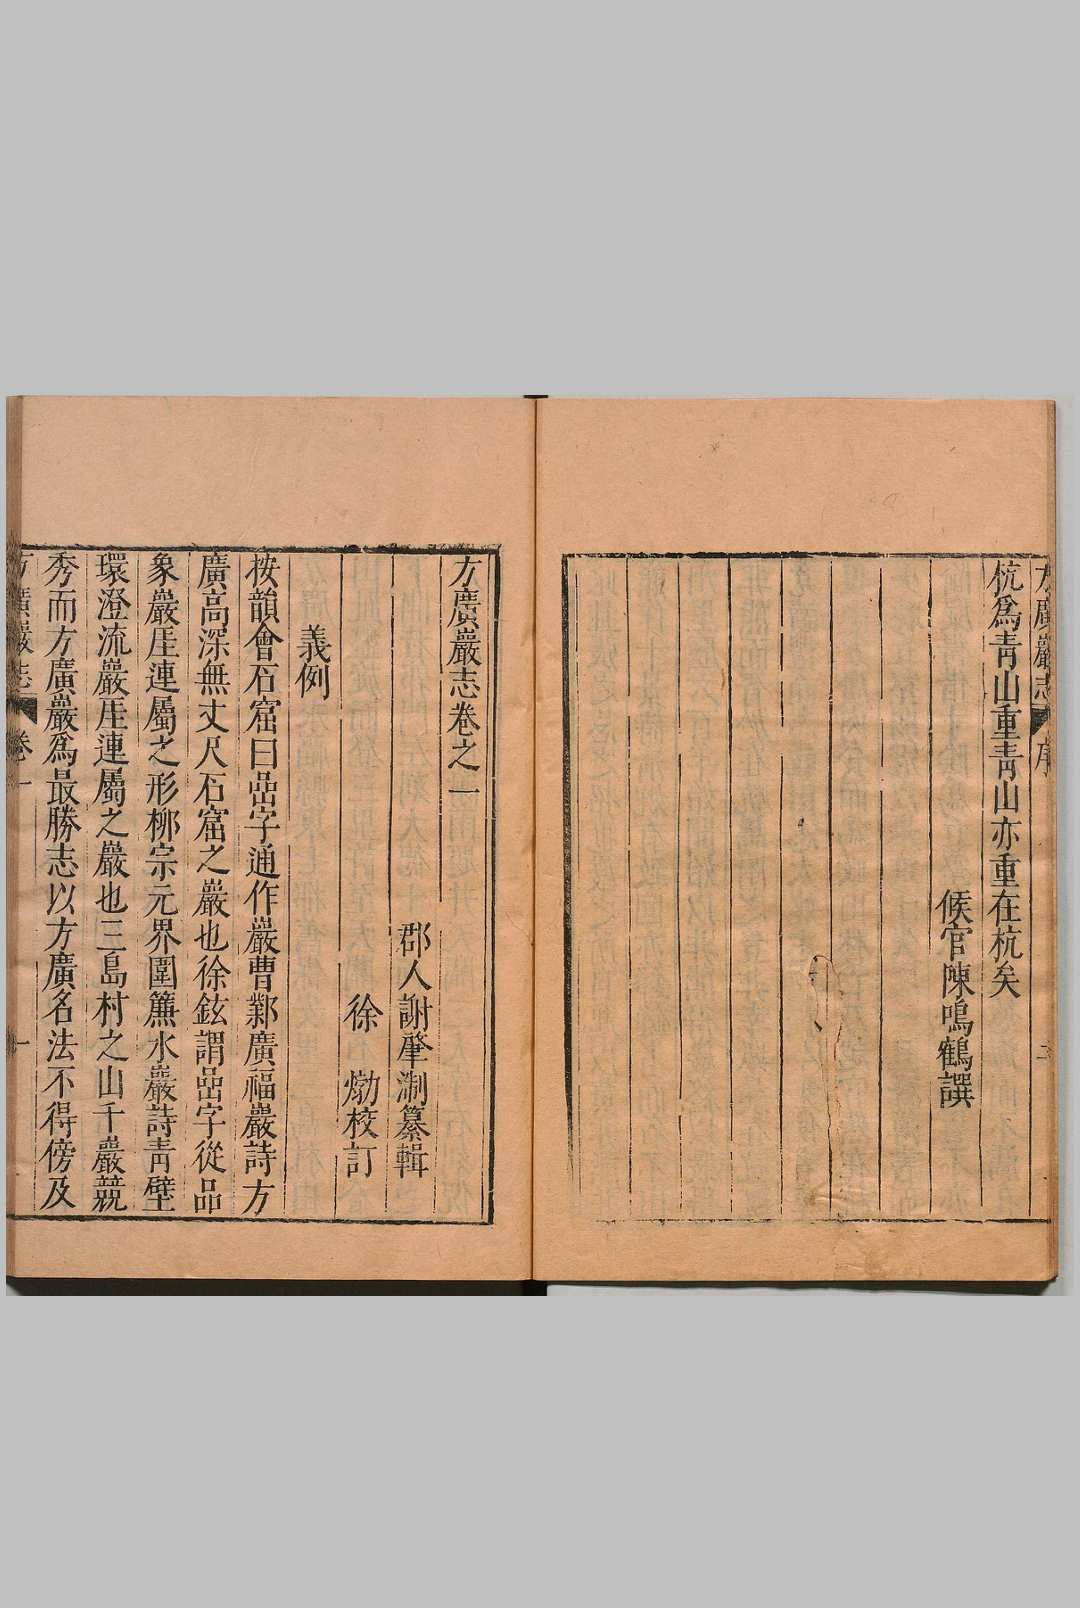 方廣巖志 序 二
杭爲靑山重靑山亦重在杭矣
候官陳鳴鶴譔
方廣巖志卷之一
郡人謝肇淛纂輯
徐 𤊹校訂
義例
按韻會石窟曰嵒字通作巖曹鄴廣福巖詩方
廣高深無丈尺石窟之巖也徐鉉謂嵒字從品
象巖厓連屬之形柳宗元界圍簾水巖詩靑壁
環澄流巖厓連屬之巖也三島村之山千巖競
秀而方廣巖爲最勝志以方廣名法不得傍及
方廣巖志 卷一 一